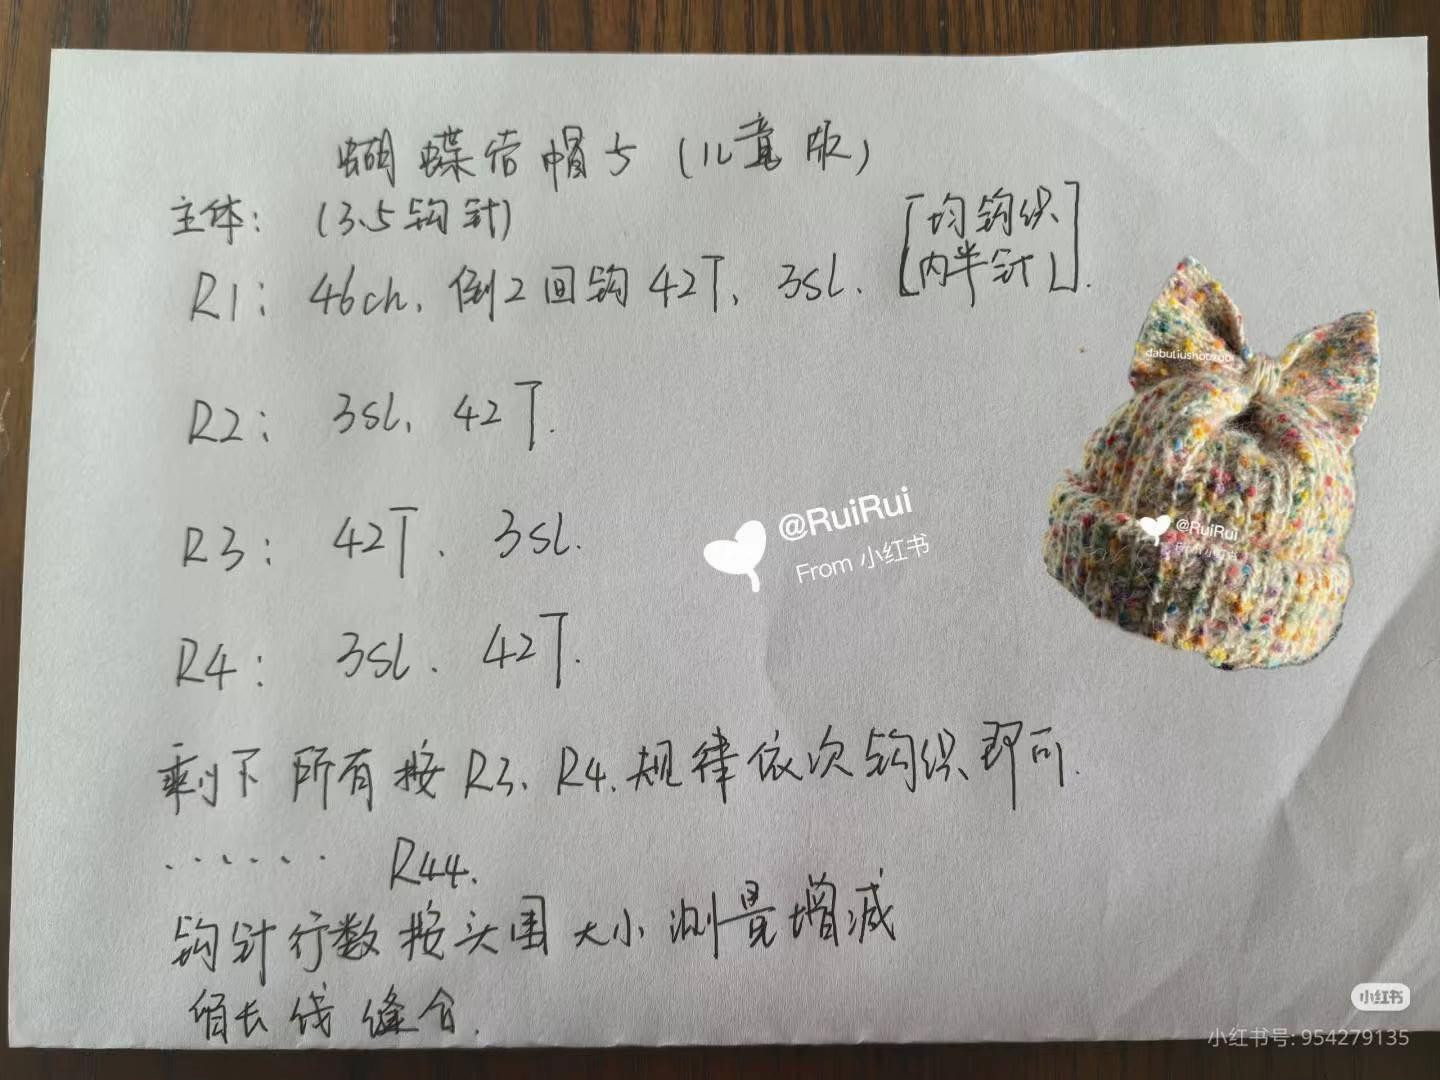 蝴蝶结帽子（儿童版）
主体：（3.5钩针）
［均钩织
内半针］.
R1：46ch, 倒2回钩42T, 3sl.
R2：3sl, 42T.
R3：42T, 3sl.
R4：3sl, 42T.
剩下所有按R3, R4, 规律依次钩织即可.
...... R44.
钩针行数按头围大小测量增减
留长线缝合.
dabuliushougou
@RuiRui
From 小红书
@RuiRui
小红书
小红书号: 954279135